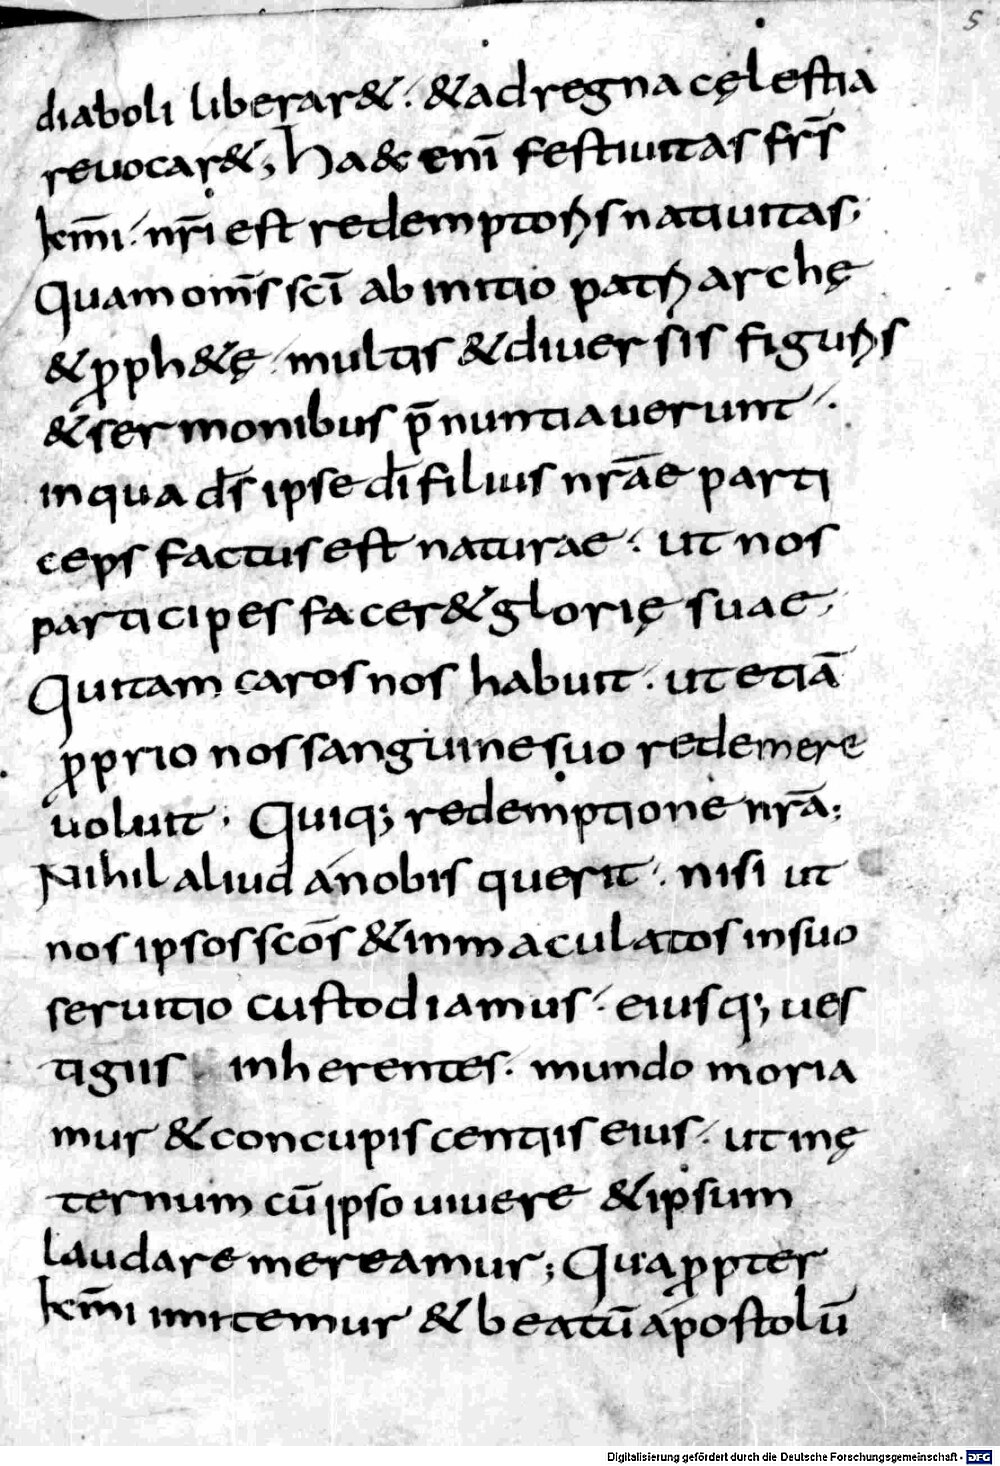 5
diaboli liberar&. &ad regna cęlestia
reuocar&; Ha&c enī festiuitas frs̄
km̄i. nr̄i est redemptoris natiuitas;
Quam om̄s sc̄i ab initio patriarchę
&proph&ę multis &diuersis figuris
&sermonibus p̄nuntiauerunt.
inqua ds̄ ipse dī filius nrāe parti
ceps factus est naturae. ut nos
participes facer& glorię suae;
Qui tam caros nos habuit. ut etiā
proprio nos sanguine suo redemere
uoluit. Quiq; redemptione nrā;
Nihil aliud anobis querit. nisi ut
nos ipsos scōs &inmaculatos insuo
seruitio custodiamus. eiusq; ues
tigiis inherentes. mundo moria
mur &concupiscentiis eius. ut inę
ternum cū ipso uiuere &ipsum
laudare mereamur; Quapropter
km̄i imitemur & beatū apostolū
Digitalisierung gefördert durch die Deutsche Forschungsgemeinschaft - DFG